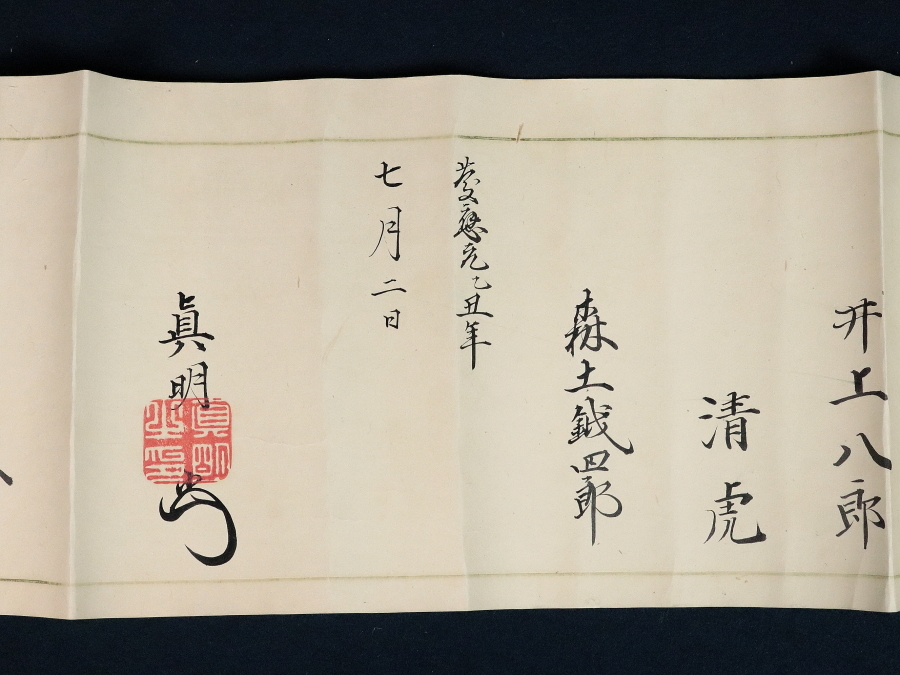 井上八郎
清虎
森土鉞四郎
慶應元乙丑年
七月二日
眞明
眞明之印